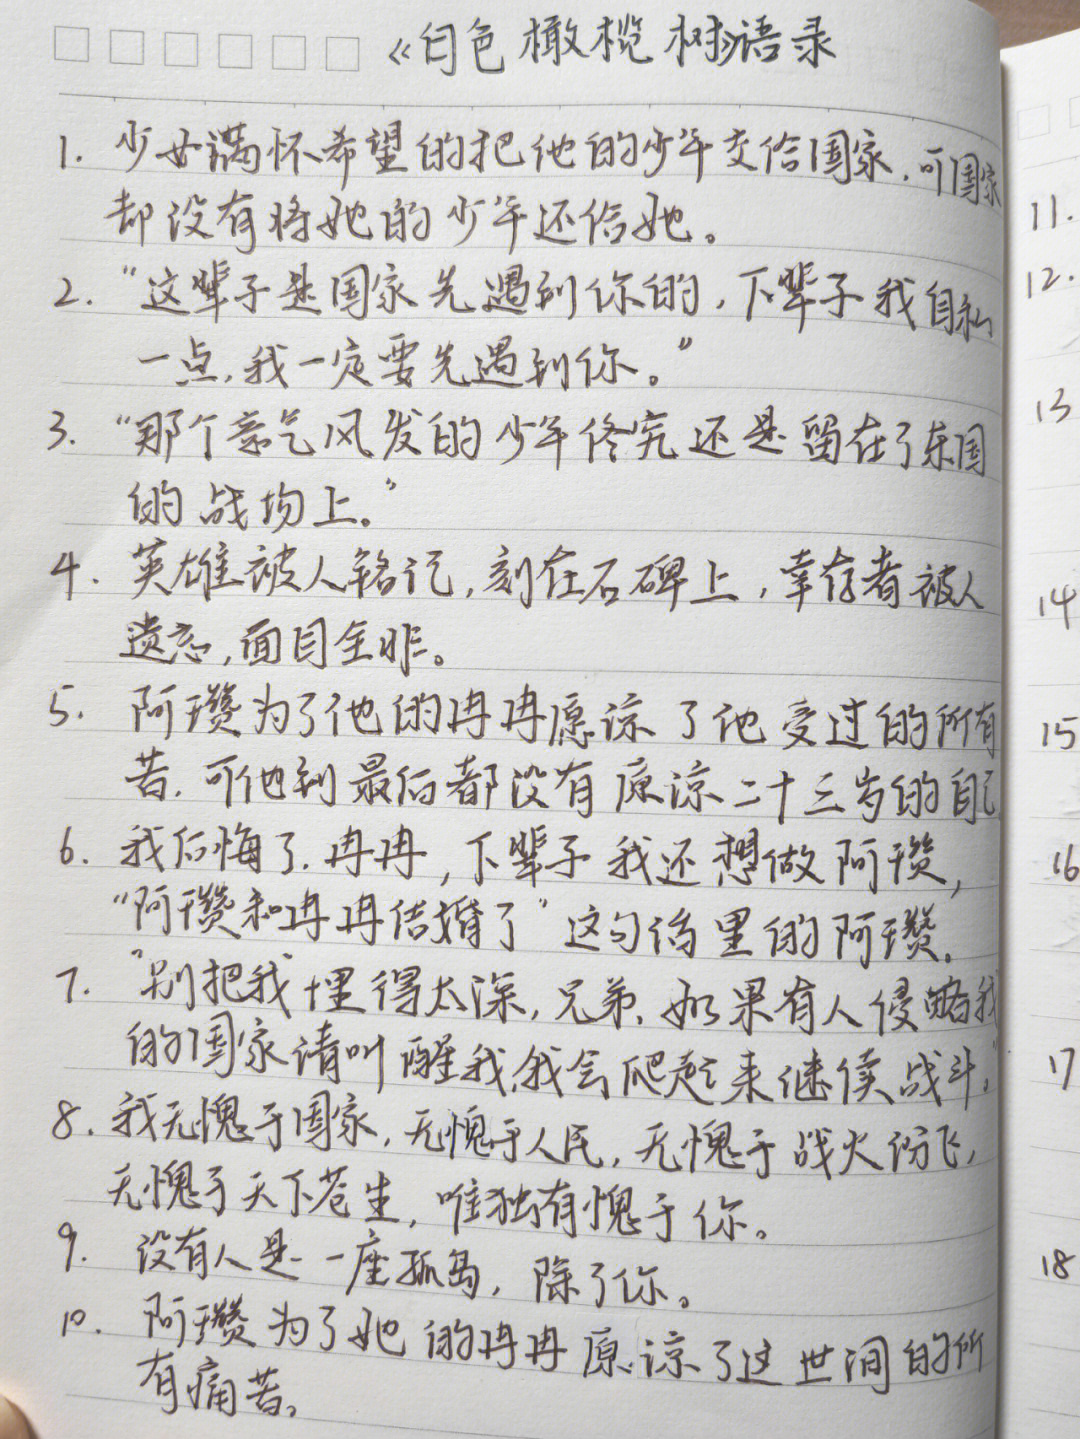 《白色橄榄树》语录
1. 少女满怀希望的把他的少年交给国家，可国家
却没有将她的少年还给她。
2. “这辈子是国家先遇到你的，下辈子我自私
一点，我一定要先遇到你。”
3. “那个意气风发的少年终究还是留在了东国
的战场上。”
4. 英雄被人铭记，刻在石碑上，幸存者被人
遗忘，面目全非。
5. 阿瓒为了他的冉冉愿谅了他受过的所有
苦，可他到最后都没有原谅二十三岁的自己
6. 我后悔了，冉冉，下辈子我还想做阿瓒，
“阿瓒和冉冉结婚了”这句话里的阿瓒。
7. “别把我埋得太深，兄弟，如果有人侵略我
的国家请叫醒我，我会爬起来继续战斗。”
8. 我无愧于国家，无愧于人民，无愧于战火纷飞，
无愧于天下苍生，唯独有愧于你。
9. 没有人是一座孤岛，除了你。
10. 阿瓒为了她的冉冉原谅了这世间的所
有痛苦。
11.
12.
13
14
15
16
17
18